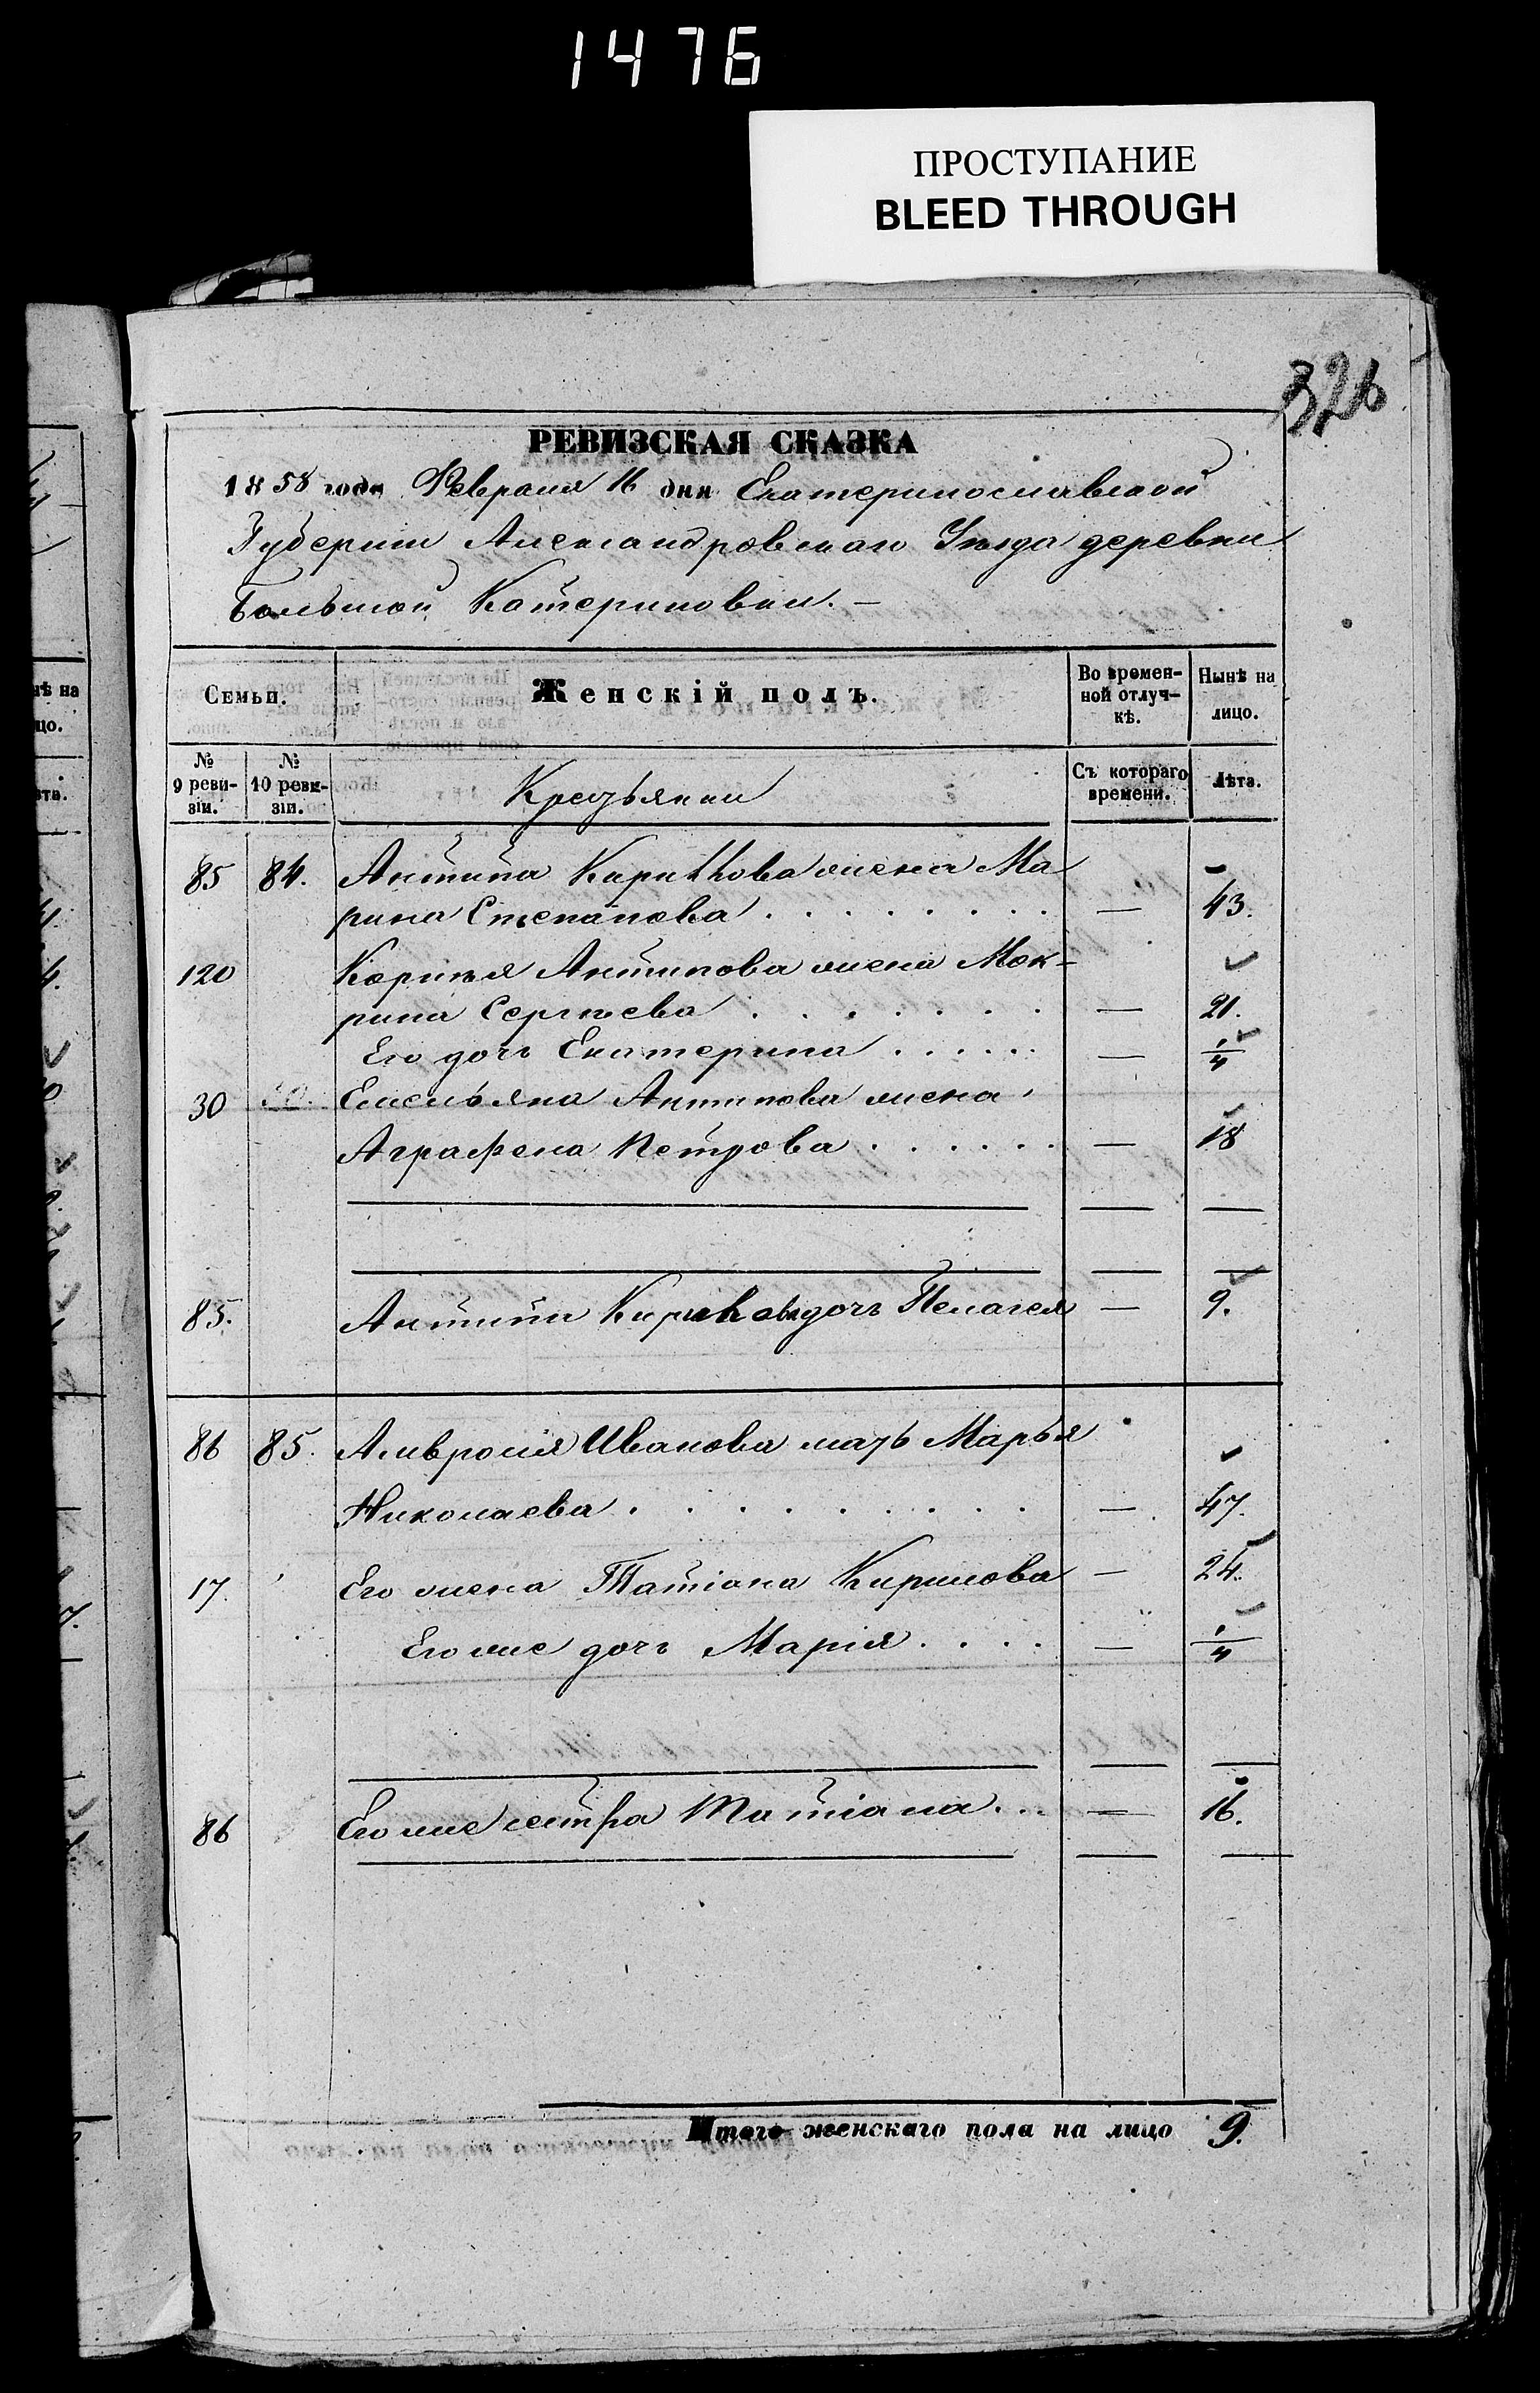 1476
ПРОСТУПАНИЕ
BLEED THROUGH
326
РЕВИЗСКАЯ СКАЗКА
1858 года Февраля 16 дня Екатеринославской
Губернии Александровскаго Уѣзда деревни
Большой Катериновки. —
Семьи. Женскій полъ. Во времен-
ной отлуч-
кѣ. Нынѣ на
лицо.
№
9 реви-
зіи. №
10 реви-
зіи. Крестьянки Съ котораго
времени. Лѣта.
85 84. Антипа Кирикова жена Ма
рина Степанова . . . . . . . . — 43.
120 Корнѣя Антипова жена Мок-
рина Сергѣева . . . . . . . — 21.
Его дочь Екатерина . . . . . — 1/4
30 Емельяна Антипова жена
Аграфена Петрова . . . . . . — 18
85. Антипа Кирикова дочь Пелагея — 9.
86 85. Амвросія Иванова мать Марья
Николаева . . . . . . . . — 47.
17. Его жена Татіана Кирилова — 24.
Его же дочь Марія . . . . — 1/4
86 Его же сестра Татіана . . . — 16.
Итого женскаго пола на лицо 9.